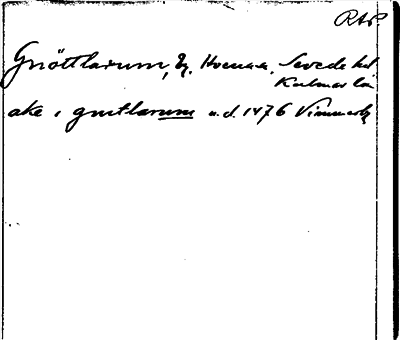 RAP.
Gnöttlarum, Tj. Hvena s., Sevede hd
Kalmar län
ake i gnutlarum u.d. 1476 Vimmerby